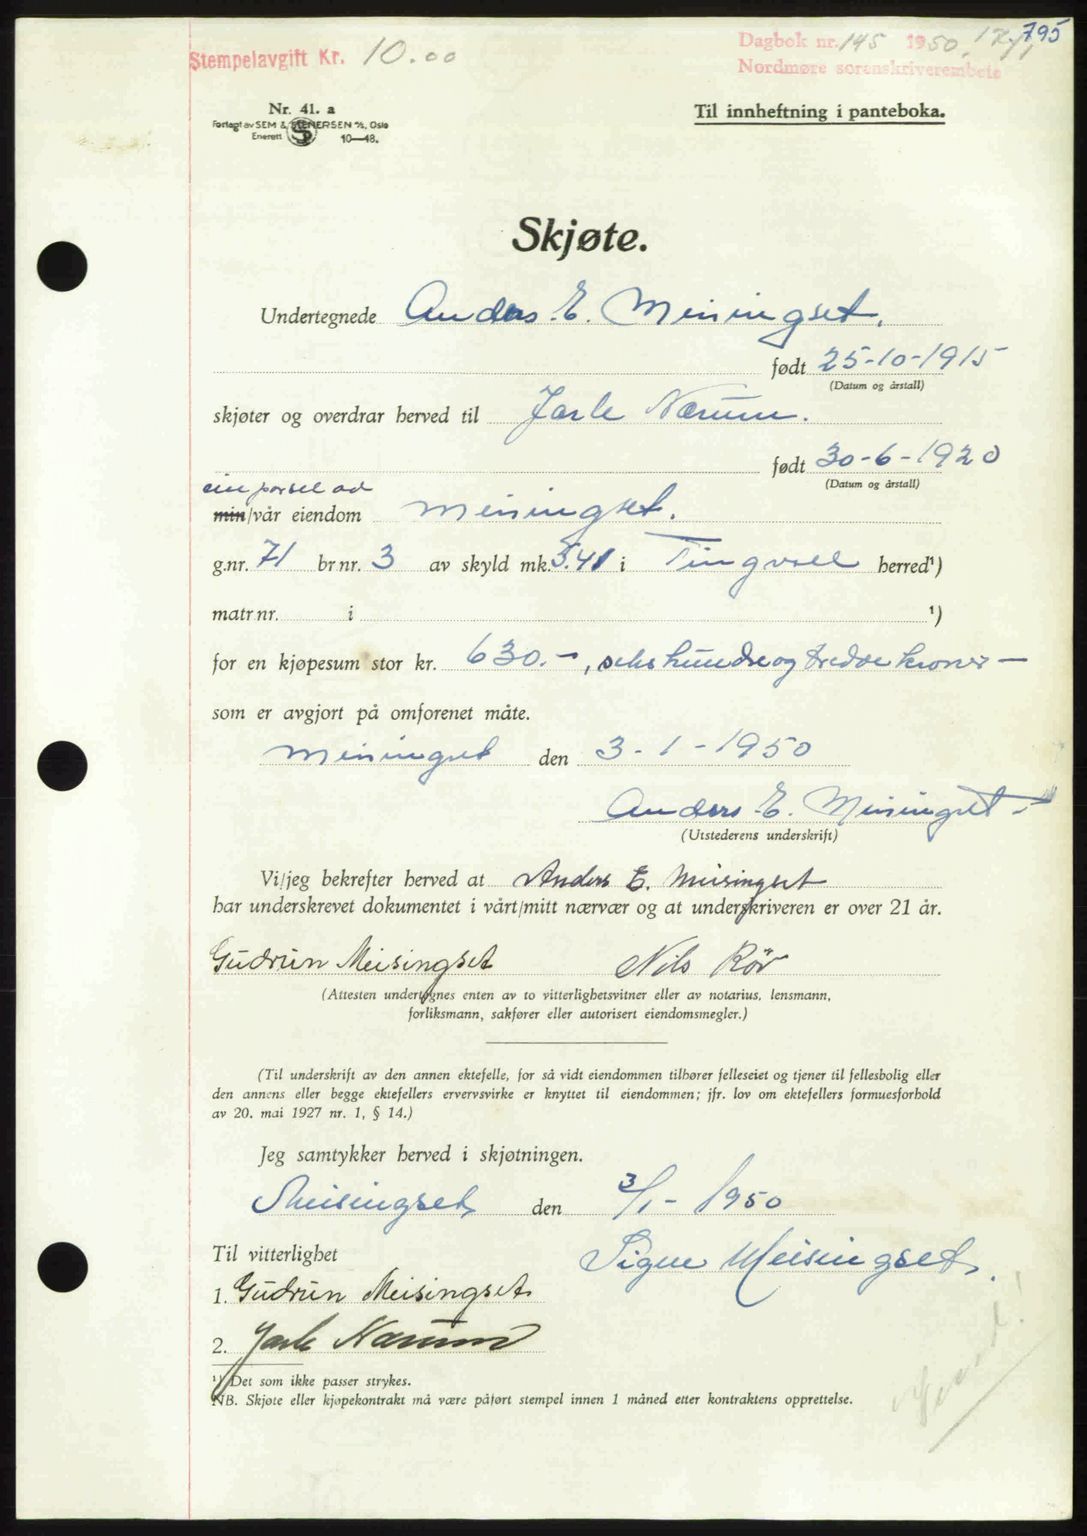 795
Stempelavgift Kr. 10.00
Dagbok nr. 145 1950, 12/1
Nordmøre sorenskriverembete
Nr. 41. a
Forlagt av SEM & STENERSEN A/S, Oslo
Enerett 10—48.
Til innheftning i panteboka.
Skjøte.
Undertegnede Anders E. Meisingset.
født 25-10-1915
(Datum og årstall)
skjøter og overdrar herved til Jarle Nærum.
født 30-6-1920
(Datum og årstall)
ein parsel av
min/vår eiendom Meisingset.
g.nr. 71 br.nr. 3 av skyld mk. 5.41 i Tingvoll herred¹)
matr.nr. i ¹)
for en kjøpesum stor kr. 630.-, sekshundre og tredve kroner —
som er avgjort på omforenet måte.
Meisingset den 3-1-1950
Anders E. Meisingset
(Utstederens underskrift)
Vi/jeg bekrefter herved at Anders E. Meisingset
har underskrevet dokumentet i vårt/mitt nærvær og at underskriveren er over 21 år.
Gudrun Meisingset Nils Röv
(Attesten undertegnes enten av to vitterlighetsvitner eller av notarius, lensmann,
forliksmann, sakfører eller autorisert eiendomsmegler.)
(Til underskrift av den annen ektefelle, for så vidt eiendommen tilhører felleseiet og tjener til fellesbolig eller
den annens eller begge ektefellers ervervsvirke er knyttet til eiendommen; jfr. lov om ektefellers formuesforhold
av 20. mai 1927 nr. 1, § 14.)
Jeg samtykker herved i skjøtningen.
Meisingset, den 3/1- 1950
Til vitterlighet Signe Meisingset.
1. Gudrun Meisingset
2. Jarle Nærum
¹) Det som ikke passer strykes.
NB. Skjøte eller kjøpekontrakt må være påført stempel innen 1 måned etter kontraktens opprettelse.